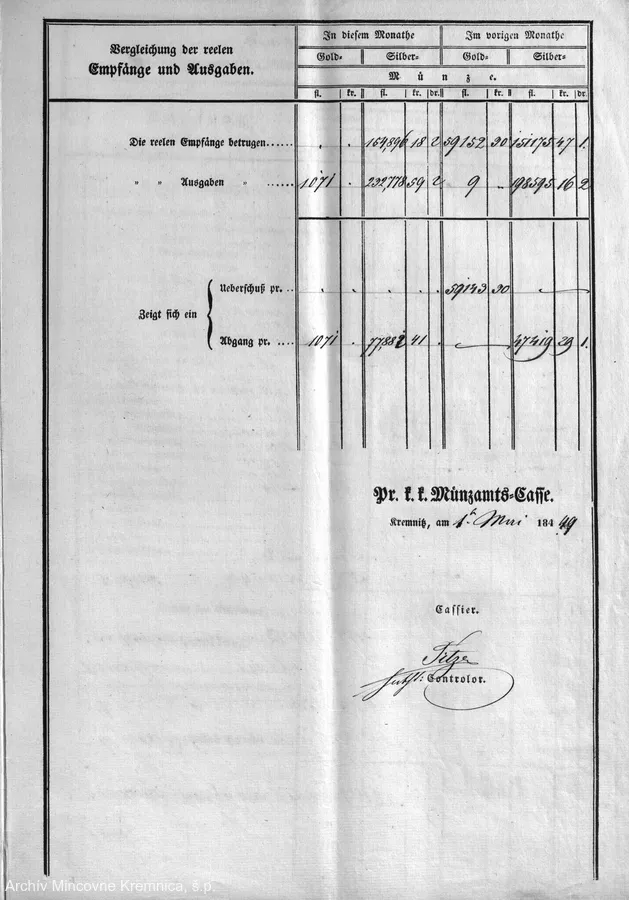 Vergleichung der reelen
Empfänge und Ausgaben.
In diesem Monathe | Im vorigen Monathe
Gold- | Silber- | Gold- | Silber-
Münze.
fl. | kr. | fl. | kr. | dr. | fl. | kr. | fl. | kr. | dr.
Die reelen Empfänge betrugen...... . . 154,896 18 2 59152 30 151175 47 1.
" " Ausgaben " ...... 1071 . 232,778 59 2 9 .. 198595 16 2
Zeigt sich ein
Ueberschuß pr. .. . . . . . 59143 30 —
Abgang pr. .... 1071 . 77,882 41 . — 47419 29 1.
Pr. k. k. Münzamts-Casse.
Kremnitz, am 1t Mai 184 49
Cassier.
Titze
Controlor.
Archív Mincovne Kremnica, š.p.